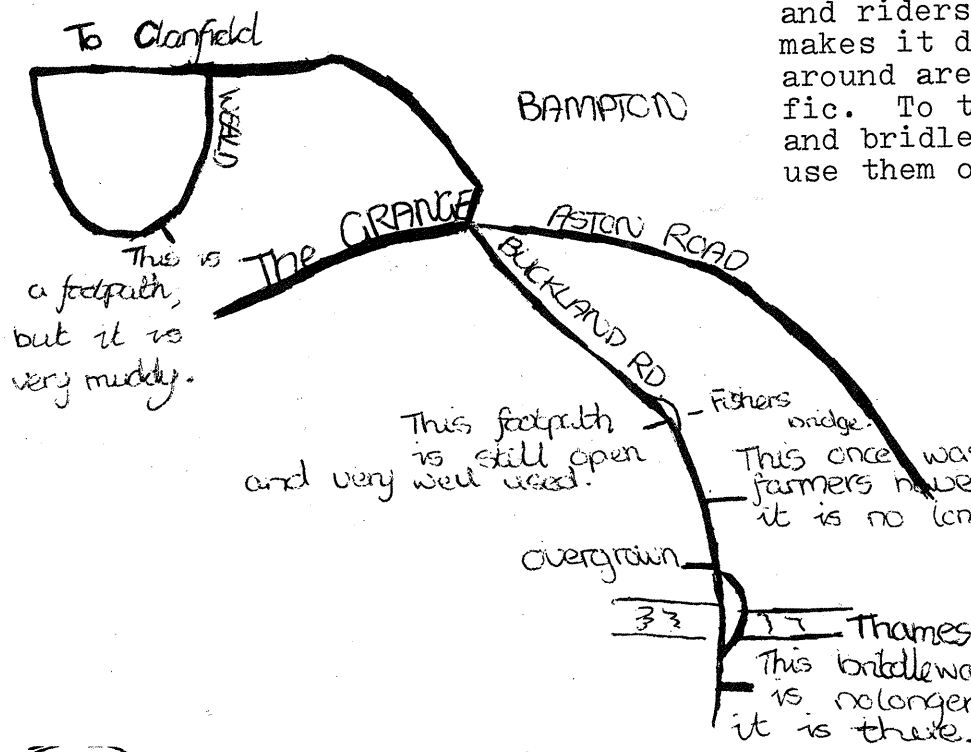 To Clanfield
and riders
makes it d
around are
fic. To t
and bridle
use them o
WEALD
BAMPTON
The GRANGE
ASTON ROAD
BUCKLAND RD
This is
a footpath,
but it is
very muddy.
Fishers
bridge.
This footpath
is still open
and very well used.
This once was
farmers howe
it is no lon
overgrown
Thames
This bridlewa
is no longer
it is there.